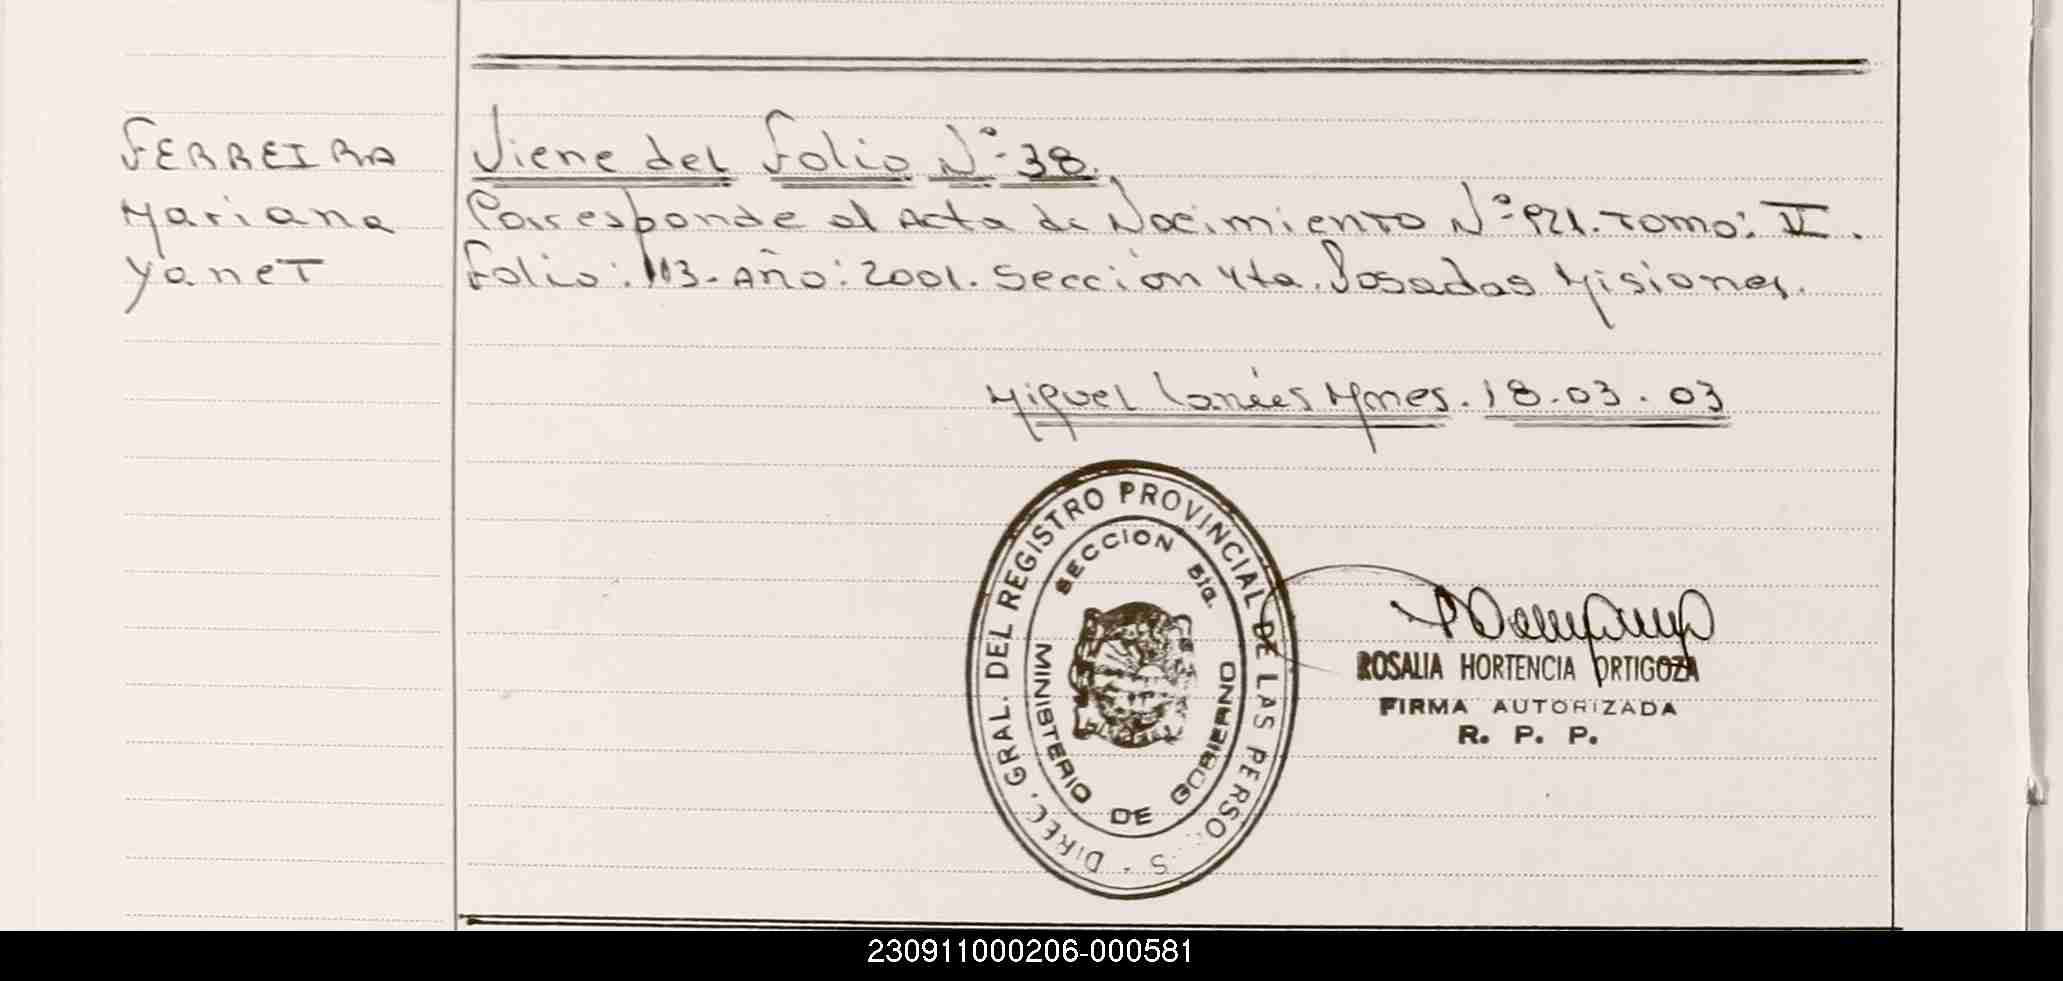 FERREIRA
Mariana
Yanet
Viene del Folio Nº 38.
Corresponde al Acta de Nacimiento Nº 921. Tomo: II.
Folio: 113. Año: 2001. Sección 4ta. Posadas Misiones.
Miguel Mnes. 18.03.03
DIREC. GRAL. DEL REGISTRO PROVINCIAL DE LAS PERSO S
SECCION 5ta.
MINISTERIO DE GOBIERNO
ROSALIA HORTENCIA ORTIGOZA
FIRMA AUTORIZADA
R. P. P.
230911000206-000581